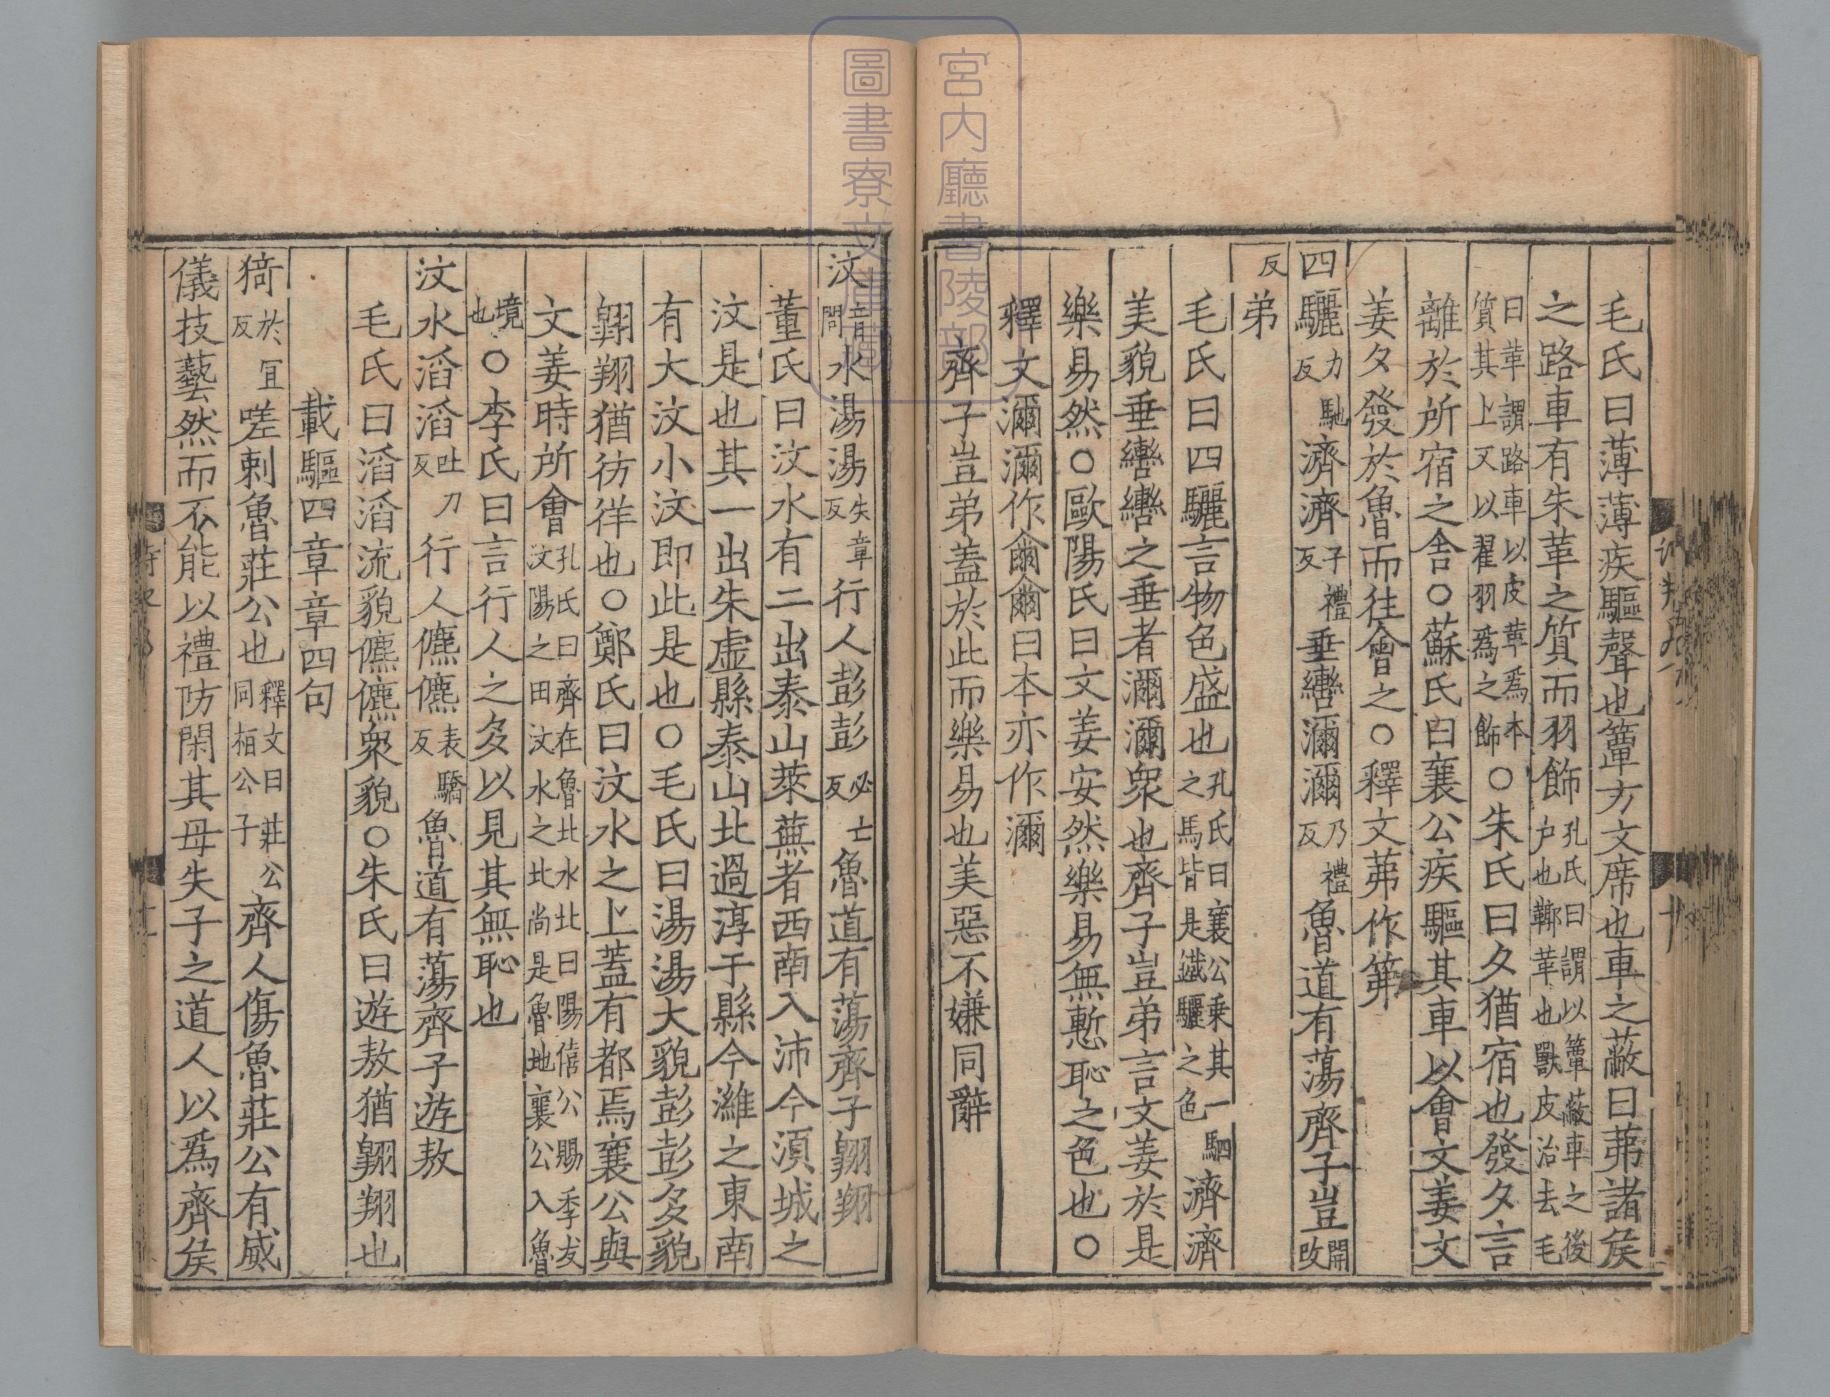 毛氏曰薄薄疾驅聲也簟方文席也車之蔽曰茀諸侯
之路車有朱革之質而羽飾孔氏曰謂以簟蔽車之後户也鞹革也獸皮治去毛
曰革謂路車以皮革爲本質其上又以翟羽爲之飾○朱氏曰夕猶宿也發夕言
離於所宿之舎○蘇氏曰襄公疾驅其車以會文姜文
姜夕發於魯而往會之○釋文茀作笰
四驪力馳反濟濟子禮反垂轡濔濔乃禮反魯道有蕩齊子豈開改
反弟
毛氏曰四驪言物色盛也孔氏曰襄公乗其一駟之馬皆是鐵驪之色濟濟
美貌垂轡轡之垂者濔濔衆也齊子豈弟言文姜於是
樂易然○歐陽氏曰文姜安然樂易無慙恥之色也○
釋文濔濔作爾爾曰本亦作濔
齊子豈弟蓋於此而樂易也美惡不嫌同辭
汶音問水湯湯失章反行人彭彭必亡反魯道有蕩齊子翱翔
董氏曰汶水有二出泰山萊蕪者西南入沛今湏城之
汶是也其一出朱虚縣泰山北過淳于縣今濰之東南
有大汶小汶即此是也○毛氏曰湯湯大貌彭彭多貌
翱翔猶彷徉也○鄭氏曰汶水之上蓋有都焉襄公與
文姜時所會孔氏曰齊在魯北水北曰陽僖公賜季友汶陽之田汶水之北尚是魯地襄公入魯
境也○李氏曰言行人之多以見其無恥也
汶水滔滔吐刀反行人儦儦表驕反魯道有蕩齊子遊敖
毛氏曰滔滔流貌儦儦衆貌○朱氏曰遊敖猶翱翔也
載驅四章章四句
猗於宜反嗟刺魯莊公也釋文曰莊公同桓公子齊人傷魯莊公有威
儀技藝然而不能以禮防閑其母失子之道人以爲齊侯
宮内廳書陵部
圖書寮文庫